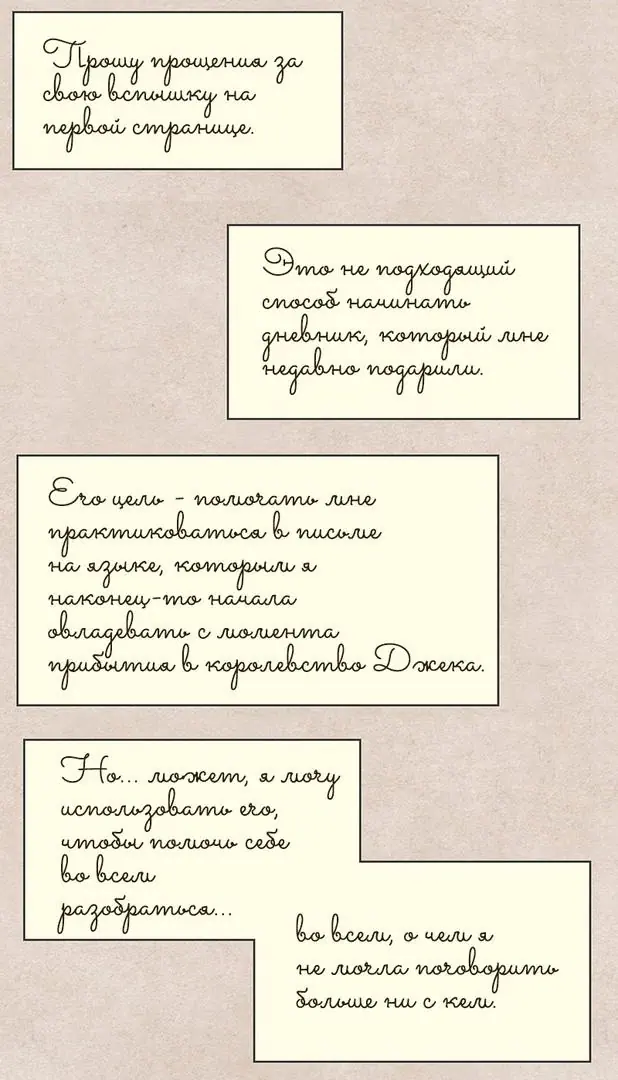 Прошу прощения за
свою вспышку на
первой странице.
Это не подходящий
способ начинать
дневник, который мне
недавно подарили.
Его цель - помогать мне
практиковаться в письме
на языке, которым я
наконец-то начала
овладевать с момента
прибытия в королевство Джека.
Но... может, я могу
использовать его,
чтобы помочь себе
во всем
разобраться...
во всем, о чем я
не могла поговорить
больше ни с кем.